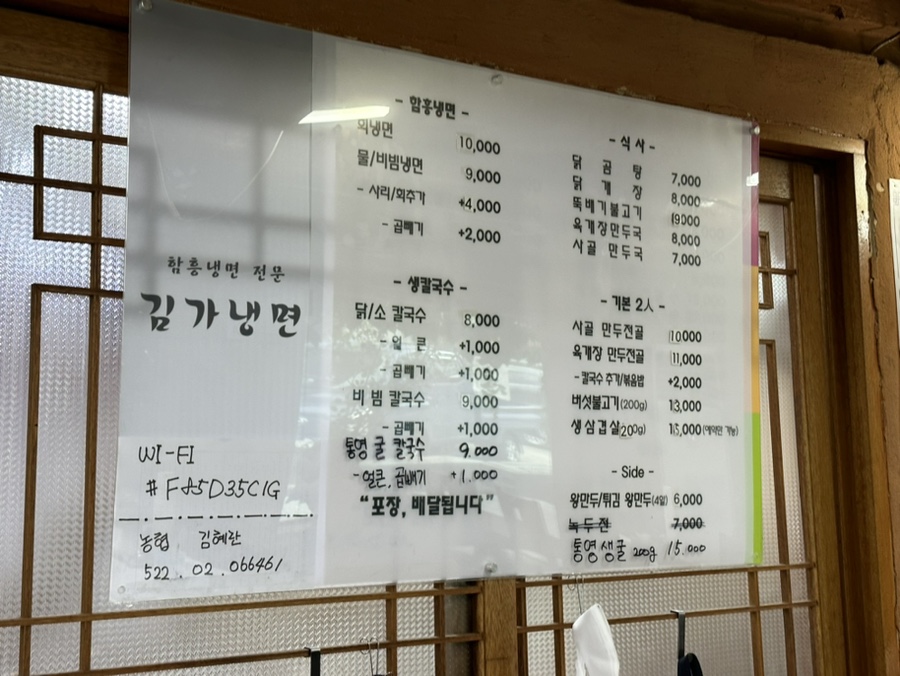 함흥냉면 전문
김가냉면
WI-FI
#F85D35C1G
농협 김혜란
522.02.066461
- 함흥냉면 -
회냉면 10,000
물/비빔냉면 9,000
- 사리/회추가 +4,000
- 곱빼기 +2,000
- 생칼국수 -
닭/소 칼국수 8,000
- 얼큰 +1,000
- 곱빼기 +1,000
비빔 칼국수 9,000
- 곱빼기 +1,000
통영 굴 칼국수 9.000
- 얼큰, 곱빼기 +1.000
"포장, 배달됩니다"
- 식사 -
닭곰탕 7,000
닭개장 8,000
뚝배기불고기 9000
육개장만두국 8,000
사골 만두국 7,000
- 기본 2人 -
사골 만두전골 10,000
육개장 만두전골 11,000
- 칼국수 추가/볶음밥 +2,000
버섯불고기(200g) 13,000
생삼겹살200g) 15,000(예약만 가능)
- Side -
왕만두/튀김 왕만두(4알) 6,000
녹두전 7,000
통영생굴 200g 15.000